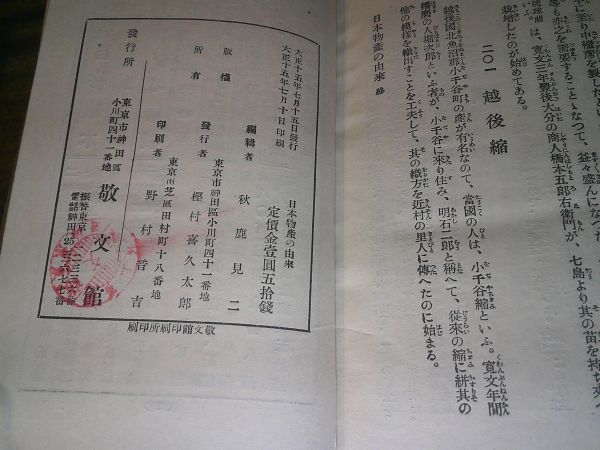 中に至り中繼席を製したとい
琉球藺は、寛文三年豐後大分の商人橋本五郎右衛門が、七島より其の苗を持ち來
等も亦之を需要することゝなつて、益々盛んになつた
栽培したのが始めてある。
二〇一 越後縮
越後國北魚沼郡小千谷町の產が有名なので、當國の人は、小千谷縮といふ。寛文年間
播磨の人堀次郎といふ者が、小千谷に來り住み、明石二郎と稱へて、從來の縮に絣其の
他の模樣を織出すことを工夫して、其の織方を近村の里人に傳へたのに始まる。
日本物產の由來 終
大正十五年七月十日印刷
大正十五年七月十五日發行
日本物產の由來
定價金壹圓五拾錢
版權所有
編輯者 秋鹿見二
東京市神田區小川町四十二番地
發行者 樫村喜久太郎
東京市芝區田村町十八番地
印刷者 野村晋吉
發行所
東京市神田區小川町四十二番地
敬文館
振替東京
電話神田25
敬文館印刷所印刷